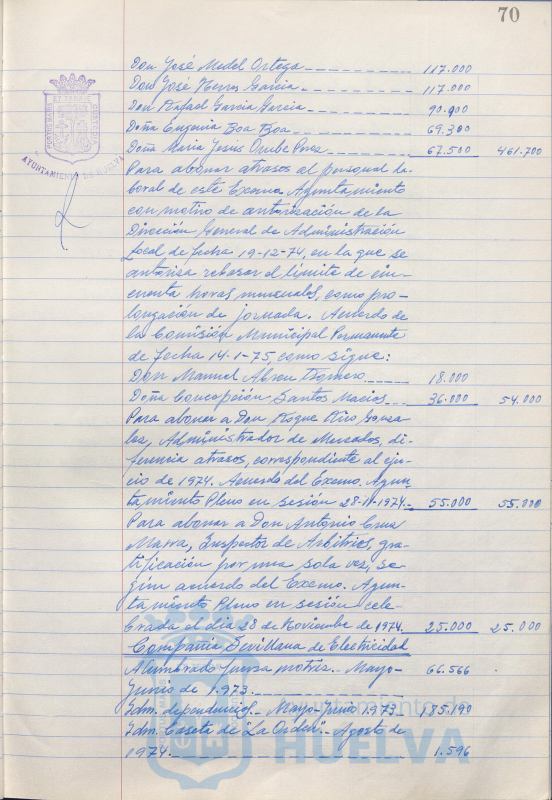 70
Don José Medel Ortega 117.000
Don José Ferros García 117.000
Don Rafael García García 90.900
Doña Eugenia Boa Boa 69.300
Doña María Jesús Oribe Pérez 67.500 461.700
Para abonar atrasos al personal la-
boral de este Excmo. Ayuntamiento
con motivo de autorización de la
Dirección General de Administración
Local de fecha 19-12-74, en la que se
autoriza rebasar el límite de cin-
cuenta horas mensuales, como pro-
longación de jornada. Acuerdo de
la Comisión Municipal Permanente
de fecha 14-1-75, como sigue:
Don Manuel Abreu Romero 18.000
Doña Concepción Santos Macías 36.000 54.000
Para abonar a Don Roque Gonza-
lez, Administrador de Mercados, di-
ferencia atrasos, correspondiente al ejer-
cio de 1974. Acuerdo del Excmo. Ayun
tamiento Pleno en sesión 28-11-1974.- 55.000 55.000
Para abonar a Don Antonio Cruz
Marra, Inspector de Arbitrios, gra-
tificación por una sola vez, se-
gún acuerdo del Excmo. Ayun-
tamiento Pleno en sesión cele-
brada el día 28 de Noviembre de 1974. 25.000 25.000
Compañía Sevillana de Electricidad
Alumbrado fuerza motriz.- Mayo- 66.566
Junio de 1.973.
Idm. dependencias.- Mayo-Junio 1.973.- 185.190
Idm. Caseta de "La Orden".- Agosto de
1974. 1.596
AYUNTAMIENTO DE HUELVA
Ayuntamiento de
HUELVA